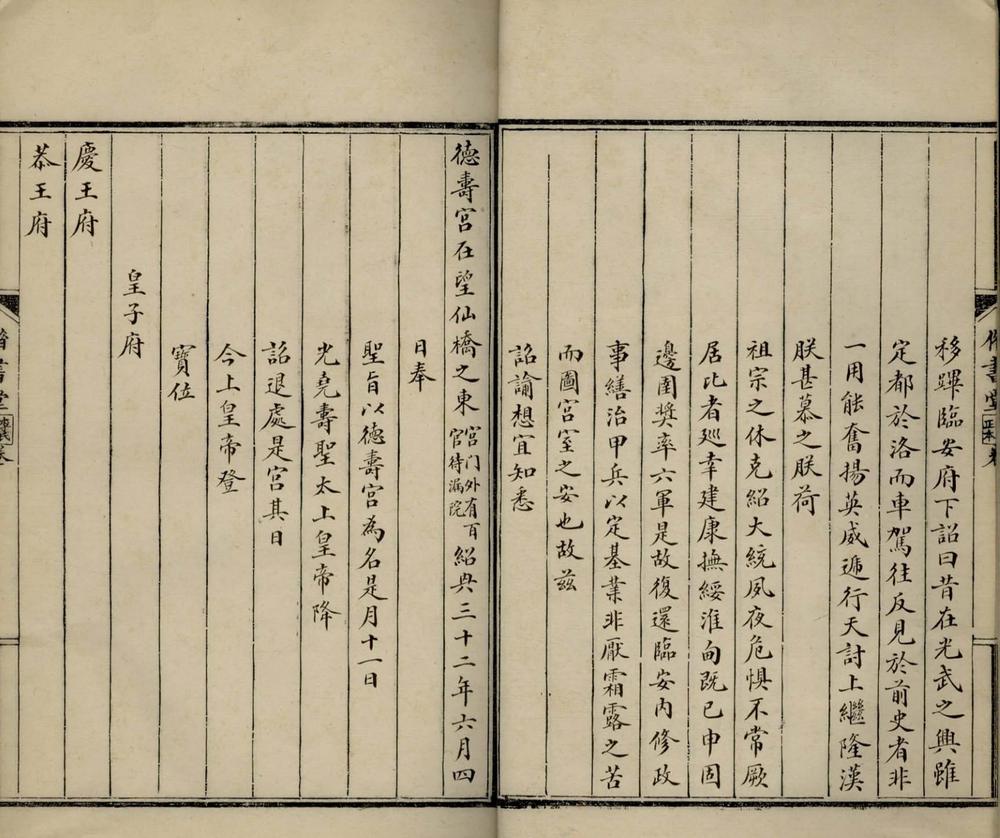 移蹕臨安府下詔曰昔在光武之興雖
定都於洛而車駕往反見於前史者非
一用能奮揚英威遞行天討上繼隆漢
朕甚慕之朕荷
祖宗之休克紹大統夙夜危懼不常厥
居比者廵幸建康撫綏淮甸既已申固
邊圉奨率六軍是故復還臨安内修政
事繕治甲兵以定基業非厭霜露之苦
而圖宫室之安也故兹
詔諭想宜知悉
德壽宫在望仙橋之東宫门外有百官待漏院紹興三十二年六月四
日奉
聖旨以德壽宫為名是月十一日
光堯壽聖太上皇帝降
詔退處是宫其日
今上皇帝登
寶位
皇子府
慶王府
恭王府